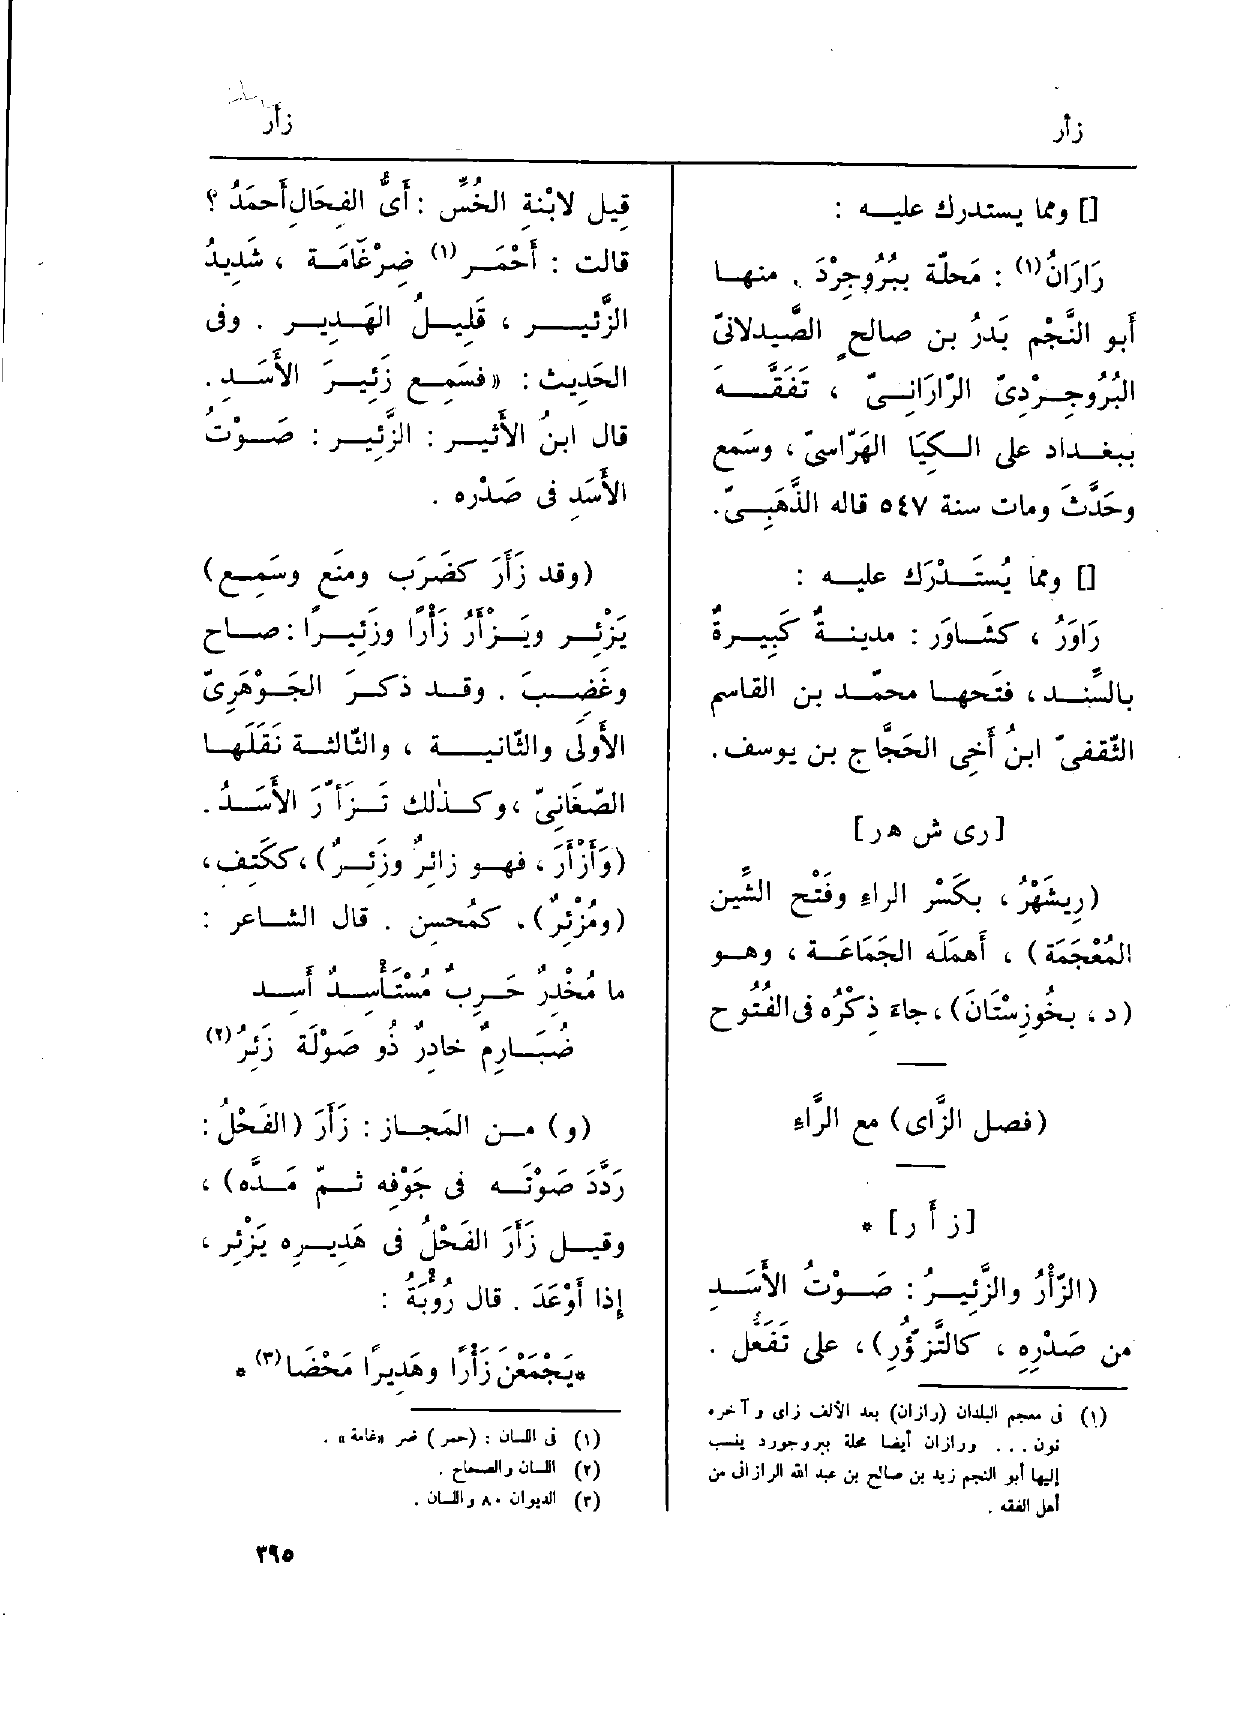 زأر
زأر
[] ومما يستدرك عليه :
رَارَانُ(١) : مَحلّة ببُرُوجِرْدَ . منها
أبو النَّجْم بَدرُ بن صالحٍ الصَّيدلانىّ
البُرُوجِردِىّ الرّارَانِىّ ، تَفَقَّه
ببغداد على الكِيَا الهَرّاسىّ ، وسَمع
وحَدَّثَ ومات سنة ٥٤٧ قاله الذَّهَبِىّ.
[] ومما يُستَدْرَك عليه :
رَاوَرُ ، كشَاوَر : مدينةٌ كَبِيرةٌ
بالسِّند ، فتَحها محمّد بن القاسم
الثّقفىّ ابنُ أَخِى الحَجَّاج بن يوسف .
[رى ش هر]
(رِيشَهْرُ ، بكَسْر الراء وفَتْح الشِّين
المُعْجَمَة) ، أهمَله الجَمَاعَة ، وهو
(د ، بخُوزِسْتَانَ) ، جاءَ ذِكْرُه فى الفُتُوح
(فصل الزَّاى) مع الرَّاءِ
[ز أ ر] *
(الزَّأْرُ والزَّئِيرُ : صَوْتُ الأَسَدِ
من صَدْرِهِ ، كالتَّزَؤُّرِ) ، على تَفَعُّل .
(١) فى معجم البلدان (رازان) بعد الألف زاى وآخره
نون ... ورازان أيضا محلة ببروجورد ينسب
إليها أبو النجم زيد بن صالح بن عبد الله الرازانى من
أهل الفقه .
قِيل لابْنةِ الخُسِّ : أَىُّ الفِحَالِ أَحمَدُ ؟
قالت : أَحْمَر(١) ضِرْغَامَة ، شَدِيدُ
الزَّئير ، قَلِيلُ الهَدِير . وفى
الحَدِيث : « فسَمِع زَئِيرَ الأَسَدِ .
قال ابنُ الأَثير : الزَّئِير : صَوْتُ
الأَسَدِ فى صَدْره .
(وقد زَأَرَ كضَرَب ومنَع وسَمِع)
يَزْئِر ويَزْأَرُ زَأْرًا وزَئِيرًا : صاح
وغَضِبَ . وقد ذكرَ الجَوْهَرِىّ
الأُولَى والثّانية ، والثّالثة نَقَلَها
الصّغَانِىّ ، وكذلك تَزَأّرَ الأَسَدُ .
(وَأَزْأَرَ ، فهو زائرٌ وزَئِرٌ) ، ككَتِف ،
(ومُزْئِرٌ) ، كمُحسِن . قال الشاعر :
ما مُخْدِرٌ حَرِبٌ مُسْتَأْسِدٌ أَسِد
ضُبَارِمٌ خادِرٌ ذُو صَوْلَة زَئِرُ(٢)
(و) من المَجاز : زَأَرَ (الفَحْلُ :
رَدَّدَ صَوْتَه فى جَوْفِه ثمّ مَدَّه) ،
وقيل زَأَرَ الفَحْلُ فى هَدِيرِه يَزْئِر ،
إذا أَوْعَدَ . قال رُؤْبَةُ :
*يَجْمَعْنَ زَأْرًا وهَدِيرًا مَحْضَا(٣) *
(١) فى اللسان : (حمر) ضر «غامة» .
(٢) اللسان والصحاح .
(٣) الديوان ٨٠ واللسان .
٣٩٥